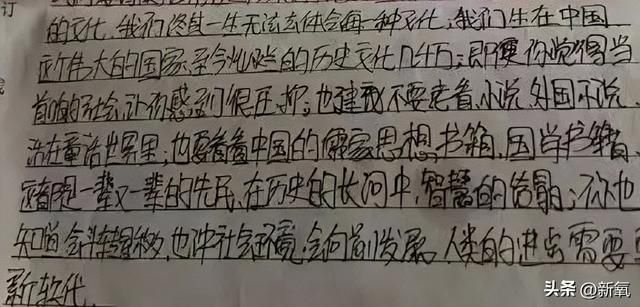 订
的文化，我们终其一生无法去体会每一种文化，我们生在中国
这个伟大的国家，至今灿烂的历史文化几千万；即便你觉得当
首的社会让你感到很压抑；也建议不要老看小说，外国小说
活在童话世界里；也要看看中国的儒家思想书籍，国学书籍，
这都是一辈又一辈的先民，在历史的长河中，智慧的结晶；你也
知道会斗转星移，也许社会环境，会向前发展，人类的进步需要
新软件。
头条 @新氧